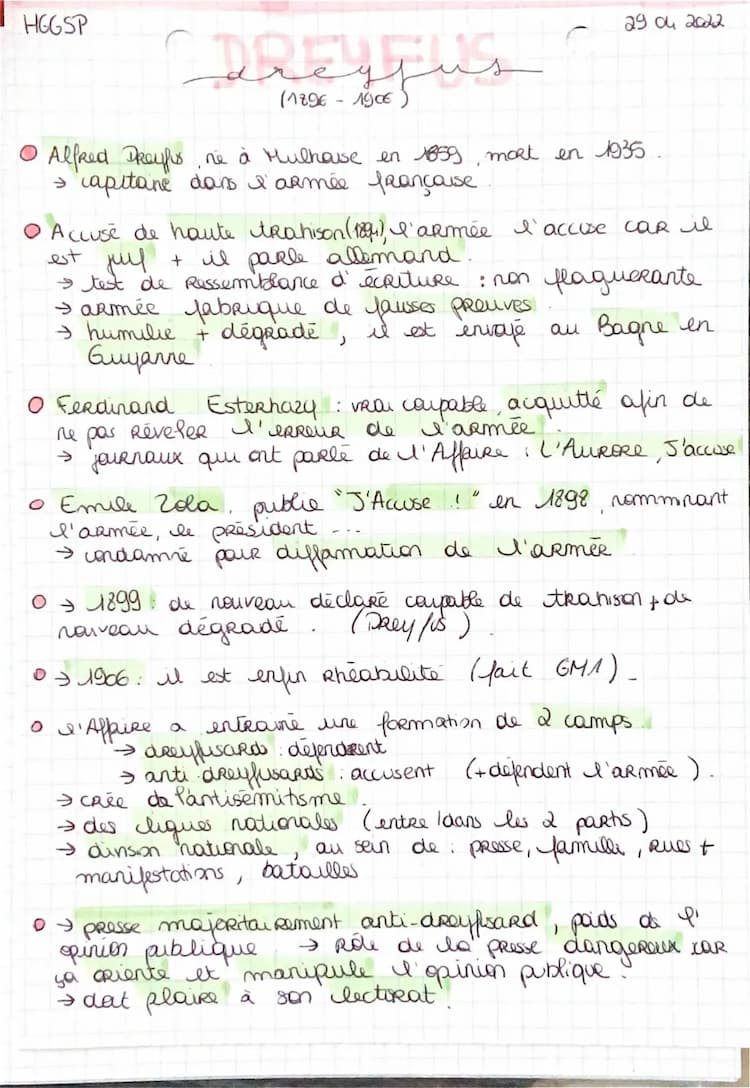 HGGSP
29 04 2022
DREYFUS
dreyfus
(1894 - 1906)
Alfred Dreyfus, né à Mulhouse en 1859, mort en 1935.
→ capitaine dans l'armée française
Accusé de haute trahison (1894), l'armée l'accuse car il
est juif + il parle allemand.
→ test de Ressemblance d'écriture : non flaguerante
→ armée fabrique de fausses preuves.
→ humilié + dégradé, il est envoyé au Bagne en
Guyanne
Ferdinand Esterhazy : vrai coupable, acquitté afin de
ne pas Réveler l'erreur de l'armée.
→ journaux qui ont parlé de l'Affaire : L'Aurore, J'accuse
Emile Zola, publie "J'Accuse !" en 1898, nommmant
l'armée, le président ...
→ condamné pour diffamation de l'armée
→ 1899 : de nouveau déclaré coupable de trahison + de
nouveau dégradé. (Dreyfus)
→ 1906 : il est enfin Rhéabilité (fait GM1)
L'Affaire a entrainé une formation de 2 camps.
→ dreyfusards : défendent
→ anti-dreyfusards : accusent (+ défendent l'armée).
→ crée de l'antisémitisme.
→ des ligues nationales (entre/dans les 2 partis)
→ division nationale, au sein de : presse, famille, rues +
manifestations, batailles
→ presse majoritairement anti-dreyfusard, poids de l'
opinion publique → Rôle de la presse dangereux car
ça oriente et manipule l'opinion publique.
→ doit plaire à son lectorat.